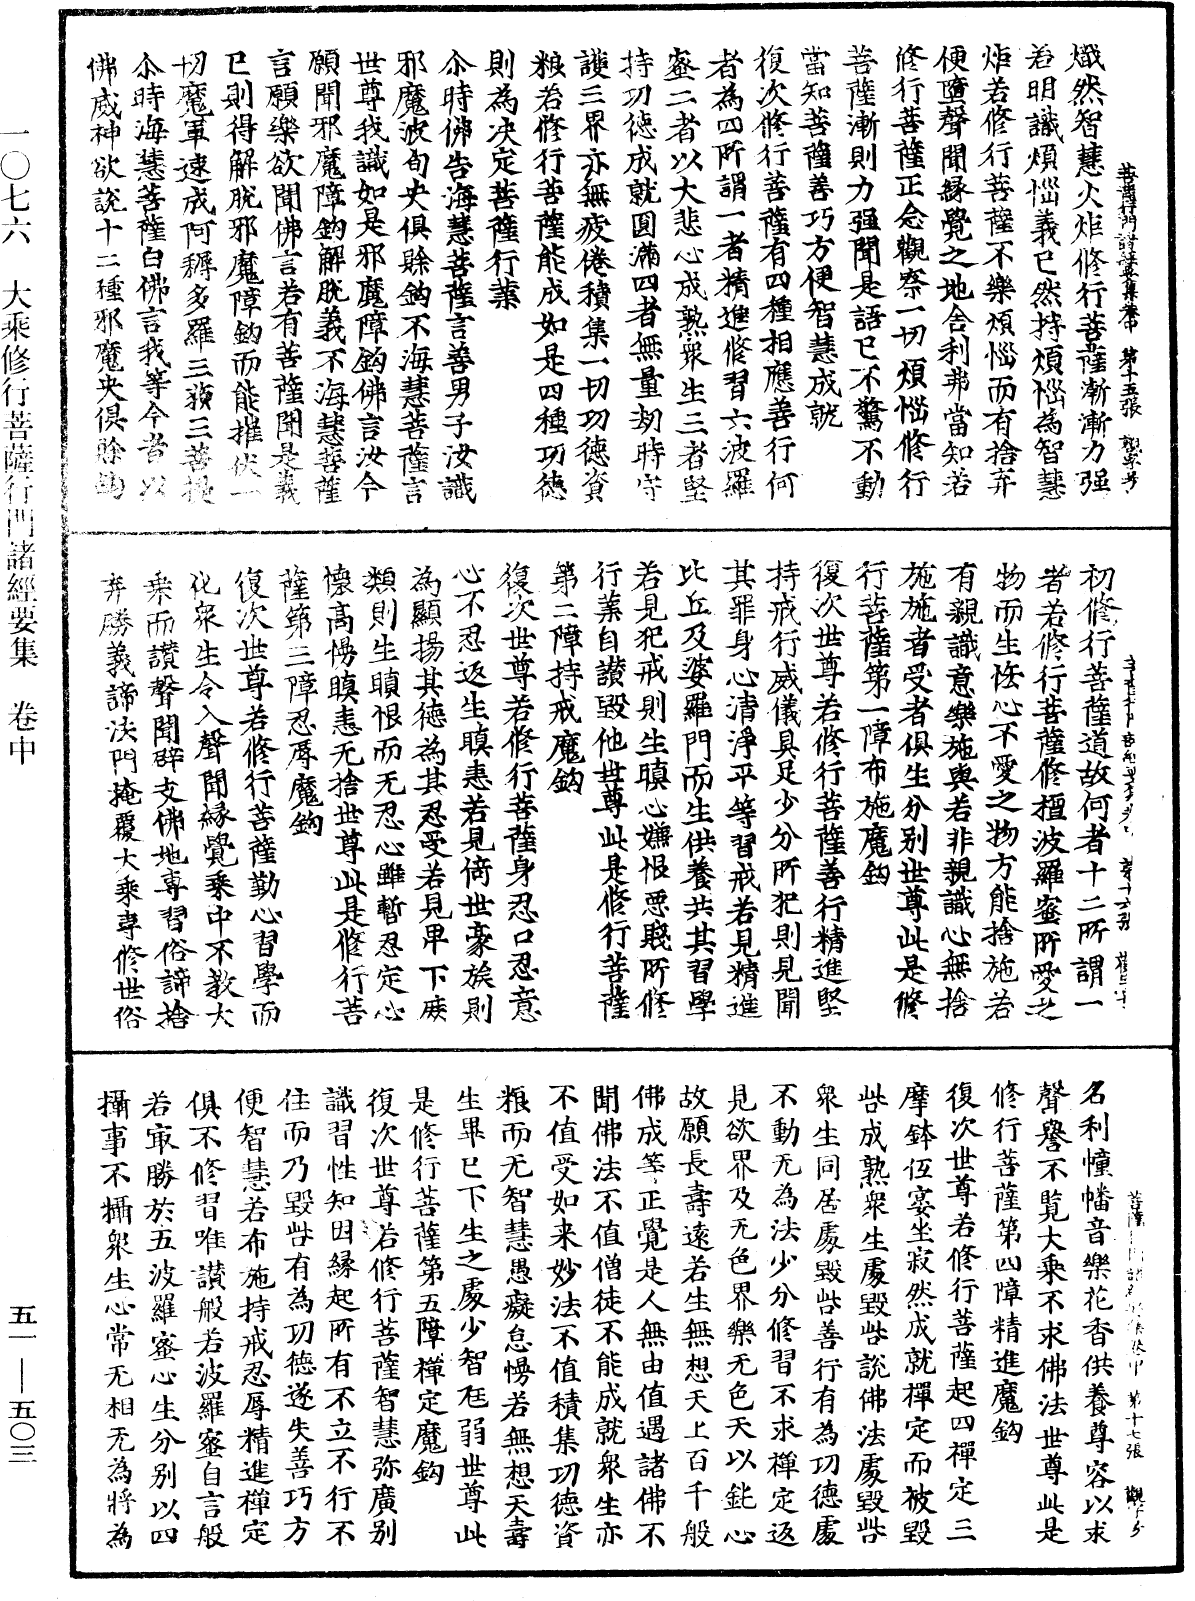 熾然智慧火炬修行菩薩漸漸力强
若明識煩惱義已然持煩惱為智慧
炬若修行菩薩不樂煩惱而有捨弃
便墮聲聞緣覺之地舍利弗當知若
修行菩薩正念觀察一切煩惱修行
菩薩漸則力强聞是語已不驚不動
當知菩薩善巧方便智慧成就
復次修行菩薩有四種相應善行何
者為四所謂一者精進修習六波羅
蜜二者以大悲心成熟衆生三者堅
持功德成就圓滿四者無量劫時守
護三界亦無疲倦積集一切功德資
粮若修行菩薩能成如是四種功德
則為决定菩薩行業
尒時佛告海慧菩薩言善男子汝識
邪魔波旬央俱賒鈎不海慧菩薩言
世尊我識如是邪魔障鈎佛言汝今
願聞邪魔障鈎解脫義不海慧菩薩
言願樂欲聞佛言若有菩薩聞是義
已則得解脫邪魔障鈎而能摧伏一
切魔軍速成阿耨多羅三藐三菩提
尒時海慧菩薩白佛言我等今者以
佛威神欲說十二種邪魔央俱賒鈎
初修行菩薩道故何者十二所謂一
者若修行菩薩修檀波羅蜜所愛之
物而生恡心不愛之物方能捨施若
有親識意樂施與若非親識心無捨
施施者受者俱生分别世尊此是修
行菩薩第一障布施魔鈎
復次世尊若修行菩薩善行精進堅
持戒行威儀具足少分所犯則見聞
其罪身心清淨平等習戒若見精進
比丘及婆羅門而生供養共其習學
若見犯戒則生瞋心嫌恨惡賤所修
行業自讃毀他世尊此是修行菩薩
第二障持戒魔鈎
復次世尊若修行菩薩身忍口忍意
心不忍返生瞋恚若見倚世豪族則
為顯揚其德為其忍受若見卑下廝
類則生瞋恨而无忍心雖暫忍定心
懷高慢瞋恚无捨世尊此是修行菩
薩第三障忍辱魔鈎
復次世尊若修行菩薩勤心習學而
化衆生令入聲聞緣覺乘中不教大
乘而讃聲聞辟支佛地專習俗諦捨
弃勝義諦法門掩覆大乘専修世俗
名利幢幡音樂花香供養尊容以求
聲譽不覽大乘不求佛法世尊此是
修行菩薩第四障精進魔鈎
復次世尊若修行菩薩起四禪定三
摩鉢伍宴坐寂然成就禪定而被毀
呰成熟衆生處毀呰說佛法處毀呰
衆生同居處毀呰善行有為功德處
不動无為法少分修習不求禪定返
見欲界及无色界樂无色天以鈍心
故願長壽遠若生無想天上百千般
佛成等正覺是人無由值遇諸佛不
聞佛法不值僧徒不能成就衆生亦
不值受如来妙法不值積集功德資
粮而无智慧愚癡怠慢若無想天壽
生畢已下生之處少智尪弱世尊此
是修行菩薩第五障禪定魔鈎
復次世尊若修行菩薩智慧弥廣别
識習性知因緣起所有不立不行不
住而乃毀呰有為功德遂失善巧方
便智慧若布施持戒忍辱精進禪定
俱不修習唯讃般若波羅蜜自言般
若㝡勝於五波羅蜜心生分别以四
攝事不攝衆生心常无相无為將為
一〇七六　大乘修行菩薩行門諸經要集　卷中
五一—五〇三